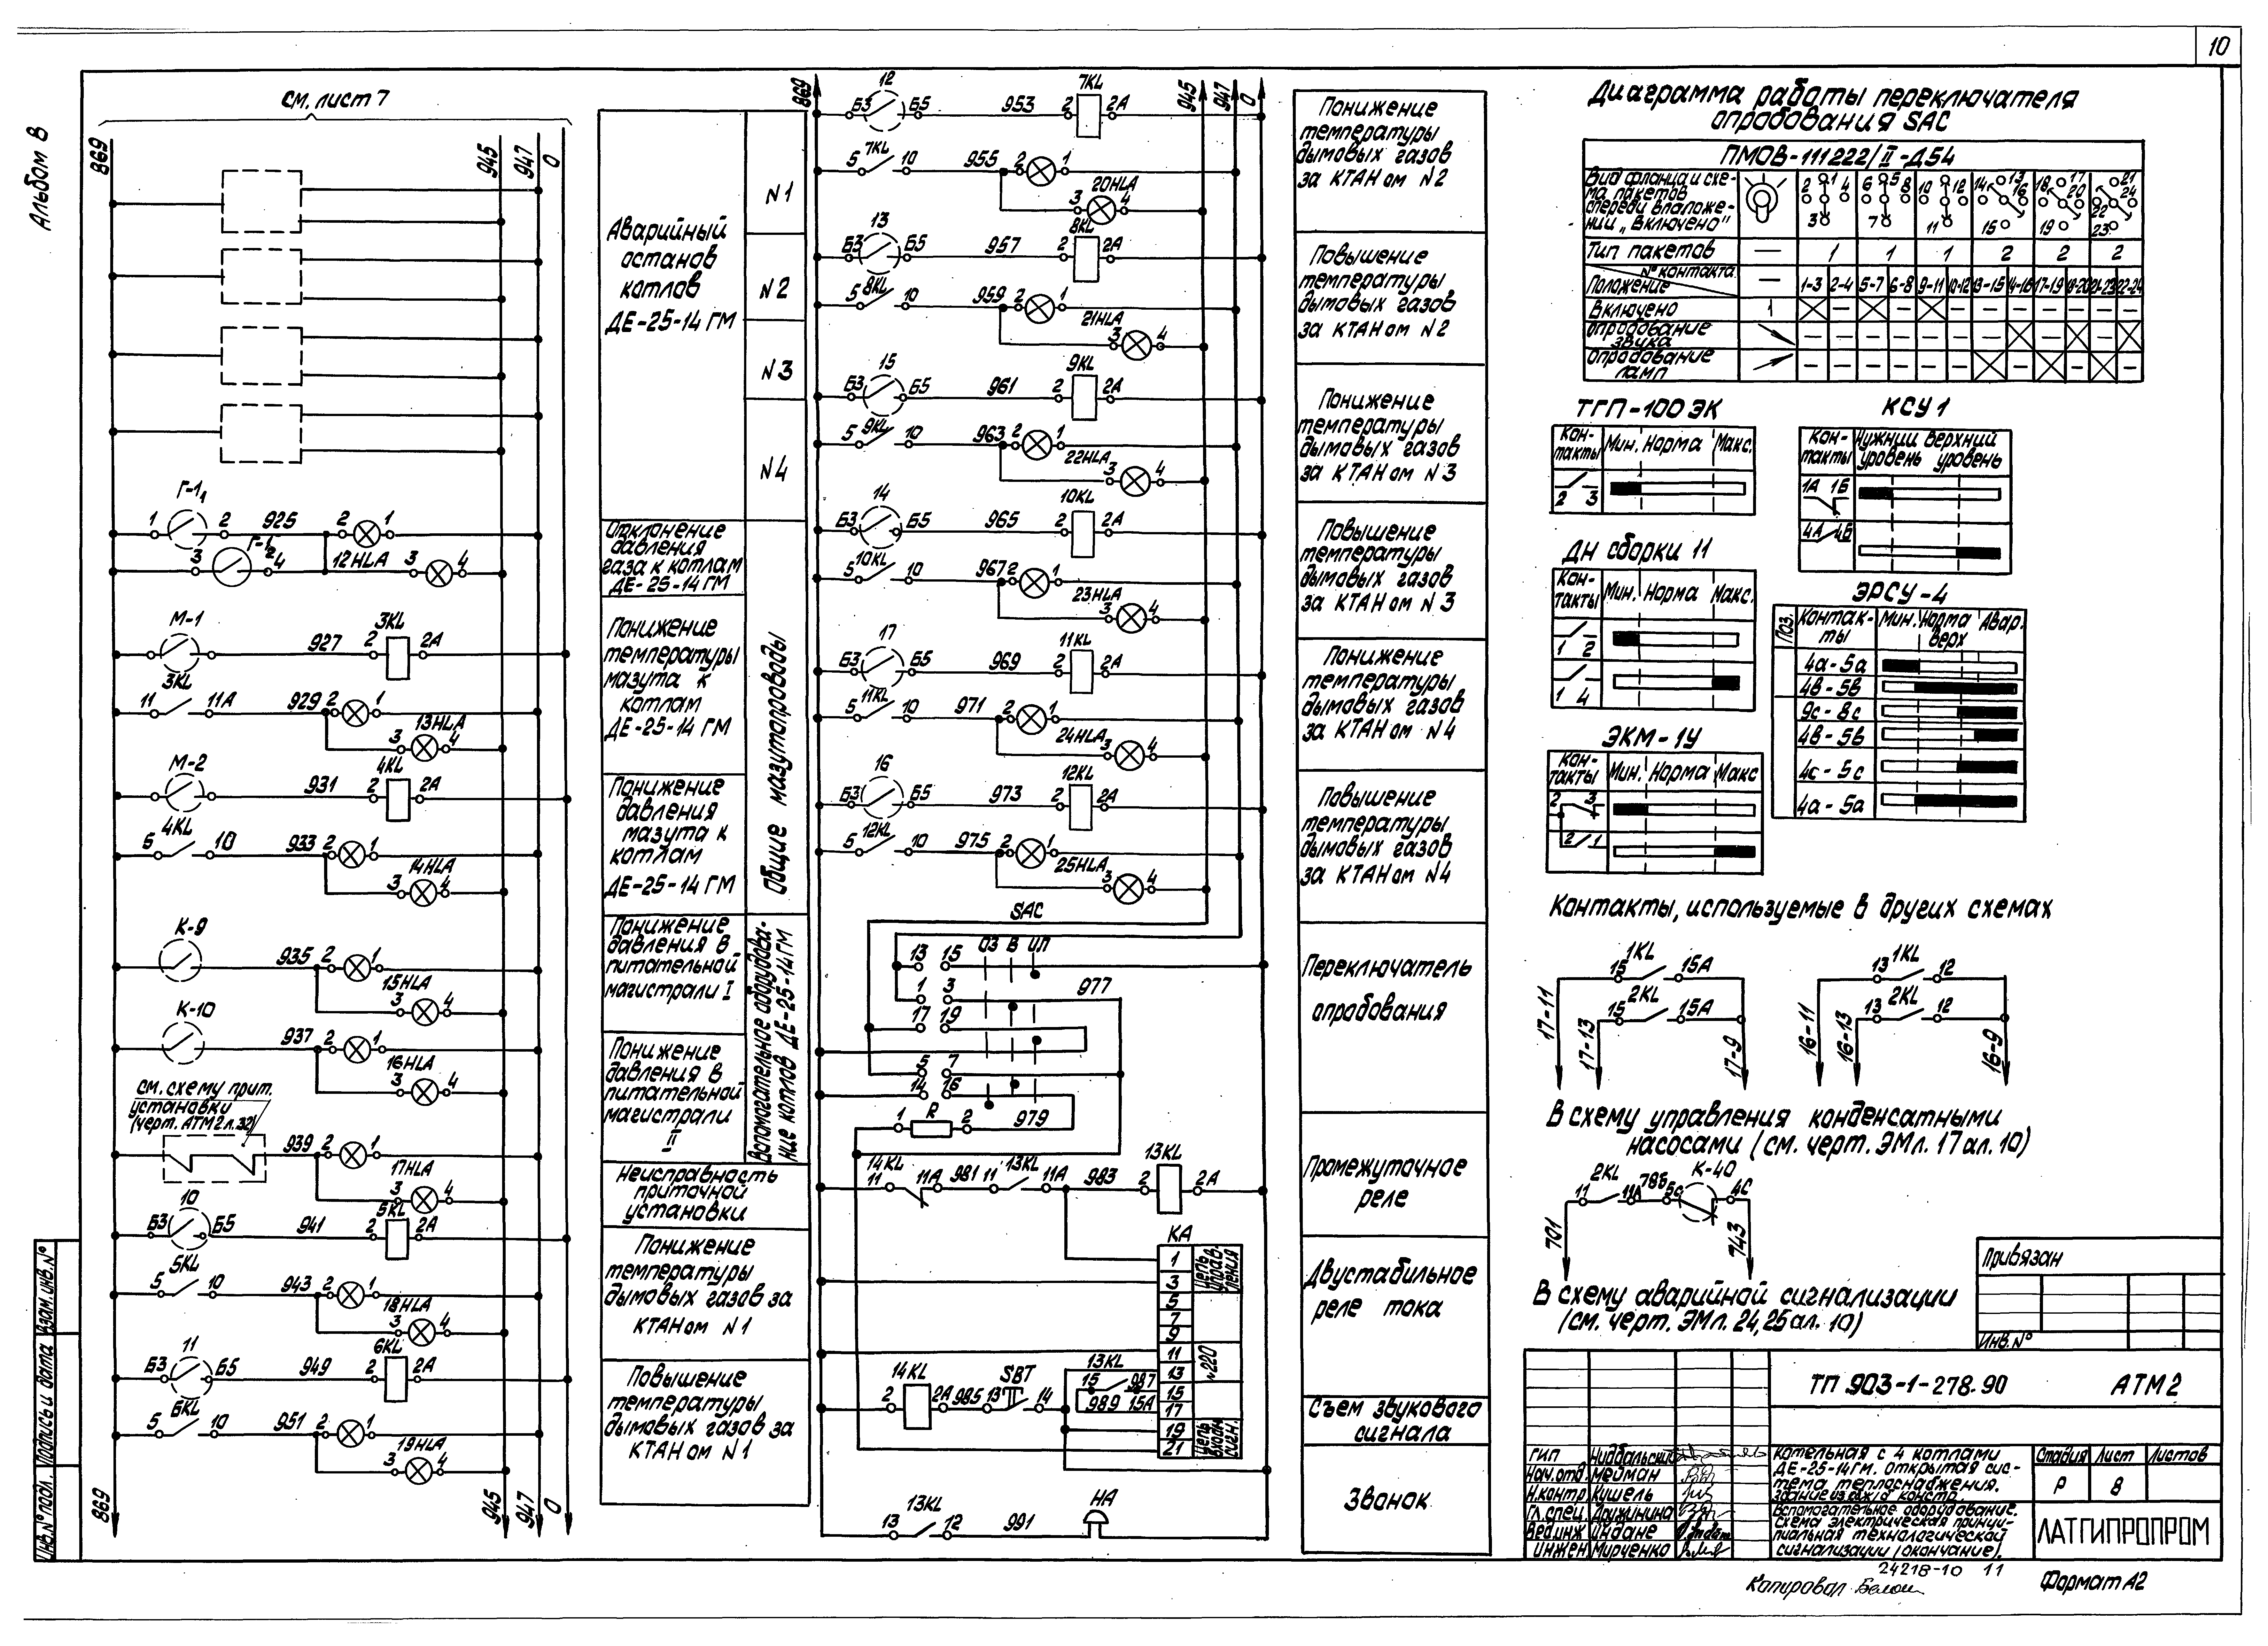 10
Альбом 8
см. лист 7
869
945
947
0
Г-1₁
1
2
925
2
1
3
Г-1₂
4
12HLA
3
4
М-1
927
3KL
2
2А
3KL
11
11А
929
2
1
13HLA
3
4
М-2
931
4KL
2
2А
4KL
6
10
933
2
1
14HLA
3
4
К-9
935
2
1
15HLA
3
4
К-10
937
2
1
16HLA
3
4
см. схему прит.
установки
(черт. АТМ2 л.32)
939
2
1
17HLA
3
4
10
Б3
Б5
941
5KL
2
2А
5KL
5
10
943
2
1
18HLA
3
4
11
Б3
Б5
949
6KL
2
2А
6KL
5
10
951
2
1
19HLA
3
4
869
945
947
0
Аварийный
останов
котлов
ДЕ-25-14 ГМ
N1
N2
N3
N4
Отклонение
давления
газа к котлам
ДЕ-25-14 ГМ
Понижение
температуры
мазута к
котлам
ДЕ-25-14 ГМ
Понижение
давления
мазута к
котлам
ДЕ-25-14 ГМ
Общие мазутопроводы
Понижение
давления в
питательной
магистрали I
Понижение
давления в
питательной
магистрали
II
Вспомогательное оборудова-
ние котлов ДЕ-25-14ГМ
Неисправность
приточной
установки
Понижение
температуры
дымовых газов за
КТАНом N1
Повышение
температуры
дымовых газов за
КТАНом N1
869
945
947
0
12
Б3
Б5
953
7KL
2
2А
7KL
5
10
955
2
1
20HLA
3
4
13
Б3
Б5
957
8KL
2
2А
8KL
5
10
959
2
1
21HLA
3
4
15
Б3
Б5
961
9KL
2
2А
9KL
5
10
963
2
1
22HLA
3
4
14
Б3
Б5
965
10KL
2
2А
10KL
5
10
967
2
1
23HLA
3
4
17
Б3
Б5
969
11KL
2
2А
11KL
5
10
971
2
1
24HLA
3
4
16
Б3
Б5
973
12KL
2
2А
12KL
5
10
975
2
1
25HLA
3
4
SAC
13
15
ОЗ
В
ОЛ
1
3
977
17
19
5
7
14
16
1
R
2
979
14KL
11
11А
981
11
13KL
11А
983
13KL
2
2А
КА
1
3
5
7
9
11
13
15
17
19
21
Цепь
управ-
ления
~220
Цепь
входн
сигн.
14KL
2
2А
985
13
SBT
14
13KL
15
987
989
15А
13KL
13
12
991
НА
Понижение
температуры
дымовых газов
за КТАНом N2
Повышение
температуры
дымовых газов
за КТАНом N2
Понижение
температуры
дымовых газов
за КТАНом N3
Повышение
температуры
дымовых газов
за КТАНом N3
Понижение
температуры
дымовых газов
за КТАНом N4
Повышение
температуры
дымовых газов
за КТАНом N4
Переключатель
опробования
Промежуточное
реле
Двустабильное
реле тока
Съем звукового
сигнала
Звонок
Диаграмма работы переключателя
опробования SAC
ПМОВ-111222/II-Д54
Вид фланца и схе-
ма пакетов
спереди в положе-
нии „Включено"
2 1 4 3
6 5 8 7
10 12 11
14 13 16 15
18 17 20 19
21 24 22 23
Тип пакетов — 1 1 1 2 2 2
N° контакта
Положение — 1-3 2-4 5-7 6-8 9-11 10-12 13-15 14-16 17-19 18-20 21-23 22-24
Включено
Опробование
звука
Опробование
ламп
ТГП-100ЭК
Кон-
такты Мин. Норма Макс.
2 3
КСУ 1
Кон-
такты Нижний уровень Верхний уровень
1А 1Б
4А 4Б
ДН сборки 11
Кон-
такты Мин. Норма Макс.
1 2
1 4
ЭРСУ-4
Поз. Контак-
ты Мин. Норма Верх Авар.
4а-5а
4в-5в
9с-8с
4в-5в
4с-5с
4а-5а
ЭКМ-1У
Кон-
такты Мин. Норма Макс
2 3
2 1
Контакты, используемые в других схемах
1KL
15
15А
2KL
15
15А
17-11
17-13
17-9
1KL
13
12
2KL
13
12
16-11
16-13
16-9
В схему управления конденсатными
насосами (см. черт. ЭМл. 17 ал. 10)
2KL
11
11А
786
5с
К-40
4С
701
743
В схему аварийной сигнализации
(см. черт. ЭМл. 24, 25 ал. 10)
Привязан
Инв. N°
ТП 903-1-278.90 АТМ2
ГИП
Нач.отд. Мейман
Н.контр. Кишель
Гл.спец. Дружинина
Вед.инж Индане
Инжен. Мирченко
Котельная с 4 котлами
ДЕ-25-14ГМ. Открытая сис-
тема теплоснабжения.
Здание из сж. констр.
Вспомогательное оборудование.
Схема электрическая принци-
пиальная технологической
сигнализации (окончание).
Стадия Лист Листов
Р 8
ЛАТГИПРОПРОМ
24218-10 11
Копировал
Формат А2
Инв.N°подл.
Подпись и дата
Взам.инв.N°